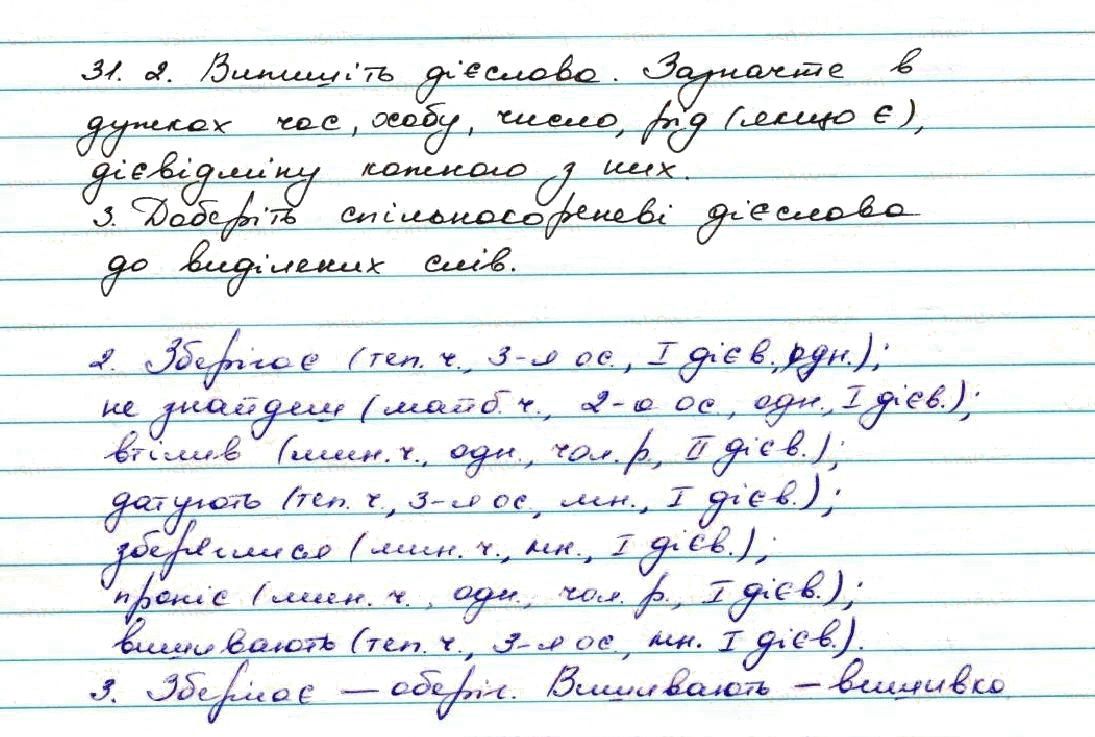 31. 2. Випишіть дієслова. Зазначте в
дужках час, особу, число, рід (якщо є),
дієвідміну кожного з них.
3. Доберіть спільнокореневі дієслова
до виділених слів.
2. Зберігає (теп. ч., 3-я ос., I дієв., одн.);
не знайдеш (майб. ч., 2-а ос., одн., I дієв.);
втілив (мин. ч., одн., чол. р., II дієв.);
датують (теп. ч., 3-я ос., мн., I дієв.);
збереглися (мин. ч., мн., I дієв.);
проніс (мин. ч., одн., чол. р., I дієв.);
вишивають (теп. ч., 3-я ос., мн. I дієв.).
3. Зберігає — оберіг. Вишивають — вишивка